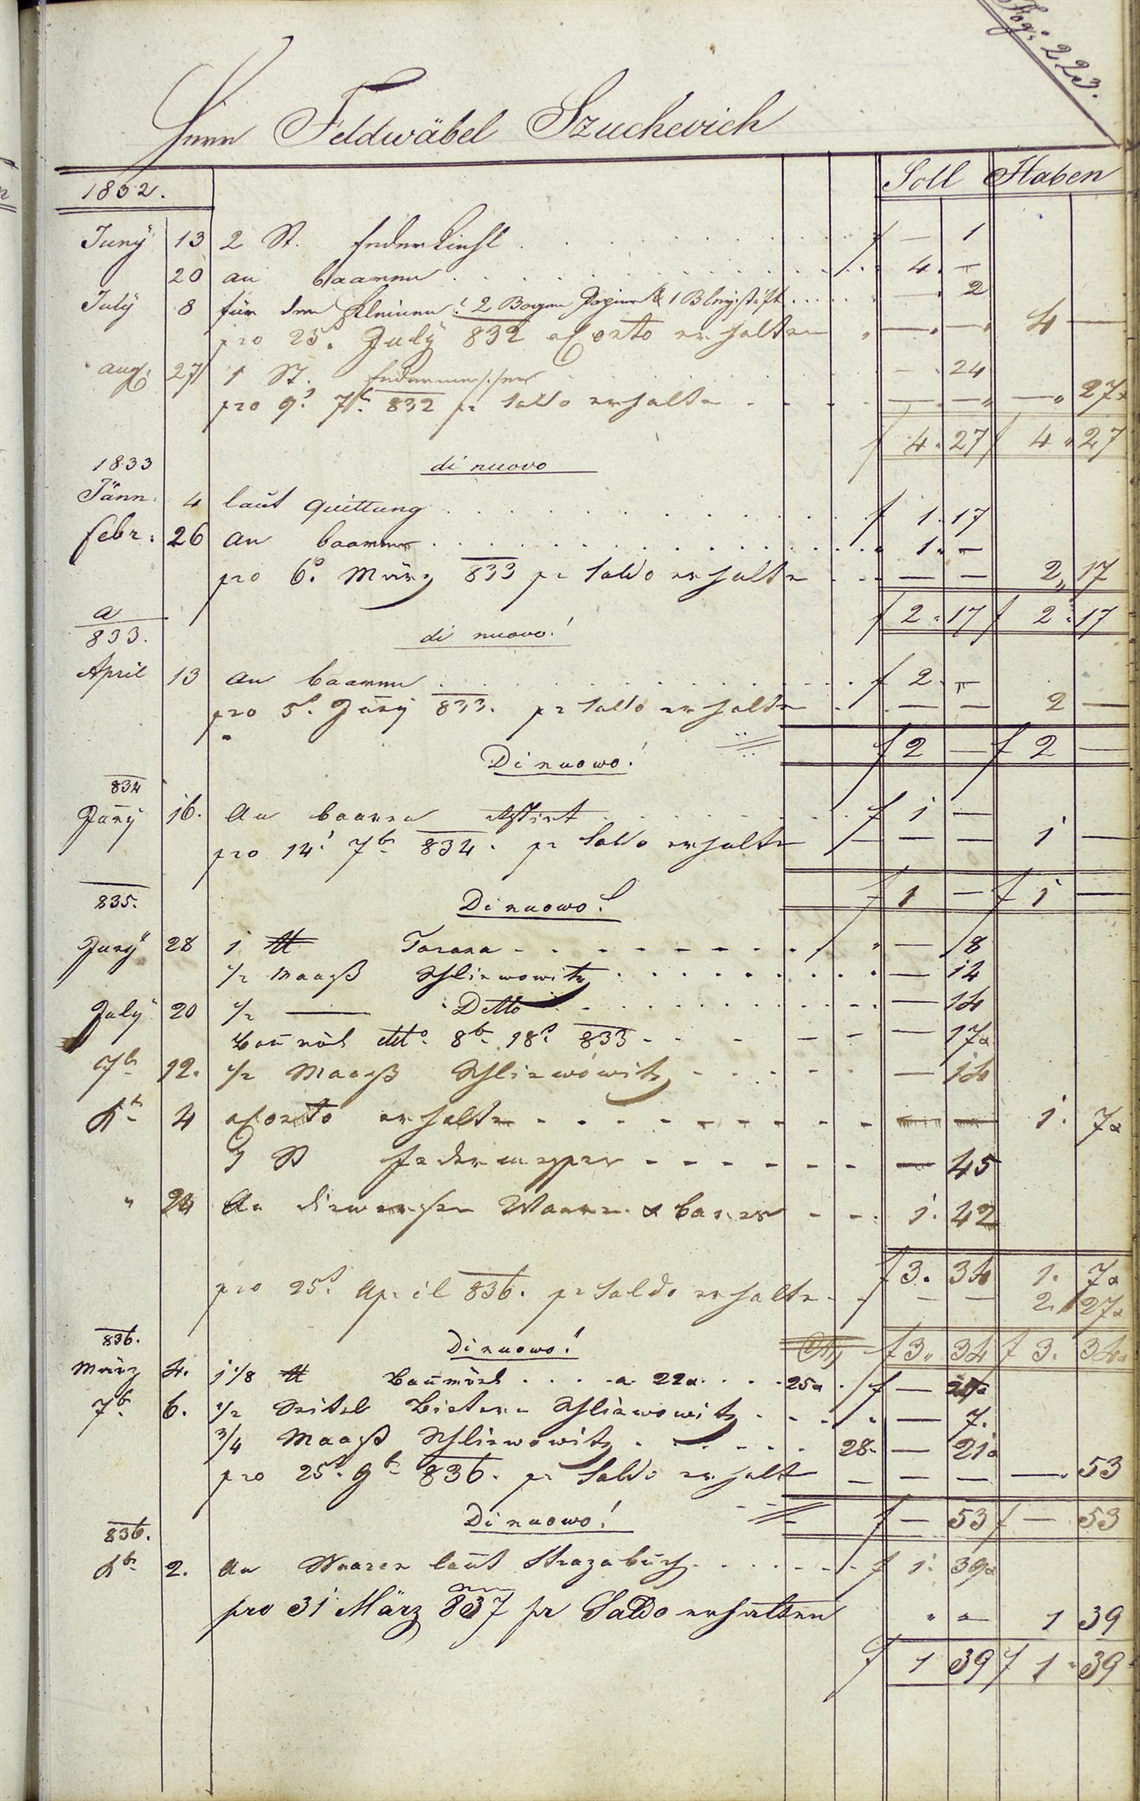 Pag: 223.
Herrn Feldwäbel Szuchevich
1832. Soll Haben
Juny 13 2 St. Federkiehl f — 1
20 an baarem 4. —
July 8 für den Kleinen: 2 Bogen Papier & 1 Bleystift — 2
pro 25. July 832 a Conto erhalten — — 4 —
aug: 27 1 St. Federmesser — 24
pro 9. 7br 832 pr Saldo erhalten — — — 27
f 4. 27 f 4. 27
1833 di nuovo
Jänn. 4 laut Quittung f 1. 17
febr. 26 an baarem 1. —
pro 6. März 833 pr Saldo erhalten — — 2 17
f 2. 17 f 2. 17
a
833. di nuovo!
April 13 an baarem f 2. —
pro 5. Juny 833. pr Saldo erhalten — — 2 —
f 2 — f 2 —
Di nuowo!
834
Juny 16. An baaren f 1 —
pro 14. 7br 834. pr Saldo erhalten — — 1 —
f 1 — f 1 —
835. Di nuowo!
Juny 28 1 ℔ — 18
1/2 Maaß Schliwowitz — 14
July 20 1/2 — Detto — 14
Baumöl 8br 18. 833 — 17
7br 12. 1/2 Maaß Schliwowitz — 14
Xbr 4 a Conto erhalten — — 1. 7
St Federmesser — 45
" 24 An diversen Waaren & bares 1. 42
f 3. 34 1. 7
pro 25. April 836. pr Saldo erhalten — — 2. 27
836. Di nuowo! f 3. 34 f 3. 34
März 4. 1 1/8 ℔ Baumöel a 22 25 f —
7br 6. 1/2 Seitel Bittern Schliwowitz — 7.
3/4 Maaß Schliwowitz 28. — 21
pro 25. 9br 836. pr Saldo erhalten — — — 53
f — 53 f — 53
836. Di nuowo!
Xbr 2. An Waaren laut Strazabuch f 1. 39
pro 31 März 837 pr Saldo erhalten " — 1 39
f 1 39 f 1. 39